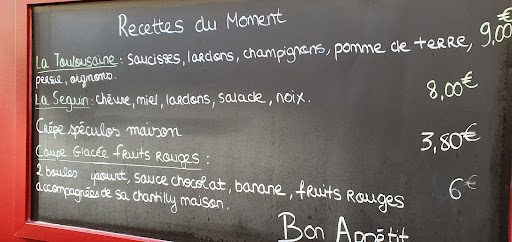 Recettes du Moment
La Toulousaine : saucisses, lardons, champignons, pomme de terre, 9,00€
persil, oignons.
La Seguin : chèvre, miel, lardons, salade, noix. 8,00€
Crêpe spéculos maison 3,80€
Coupe Glacée fruits Rouges :
2 boules yaourt, sauce chocolat, banane, fruits Rouges 6€
accompagnées de sa chantilly maison.
Bon Appétit